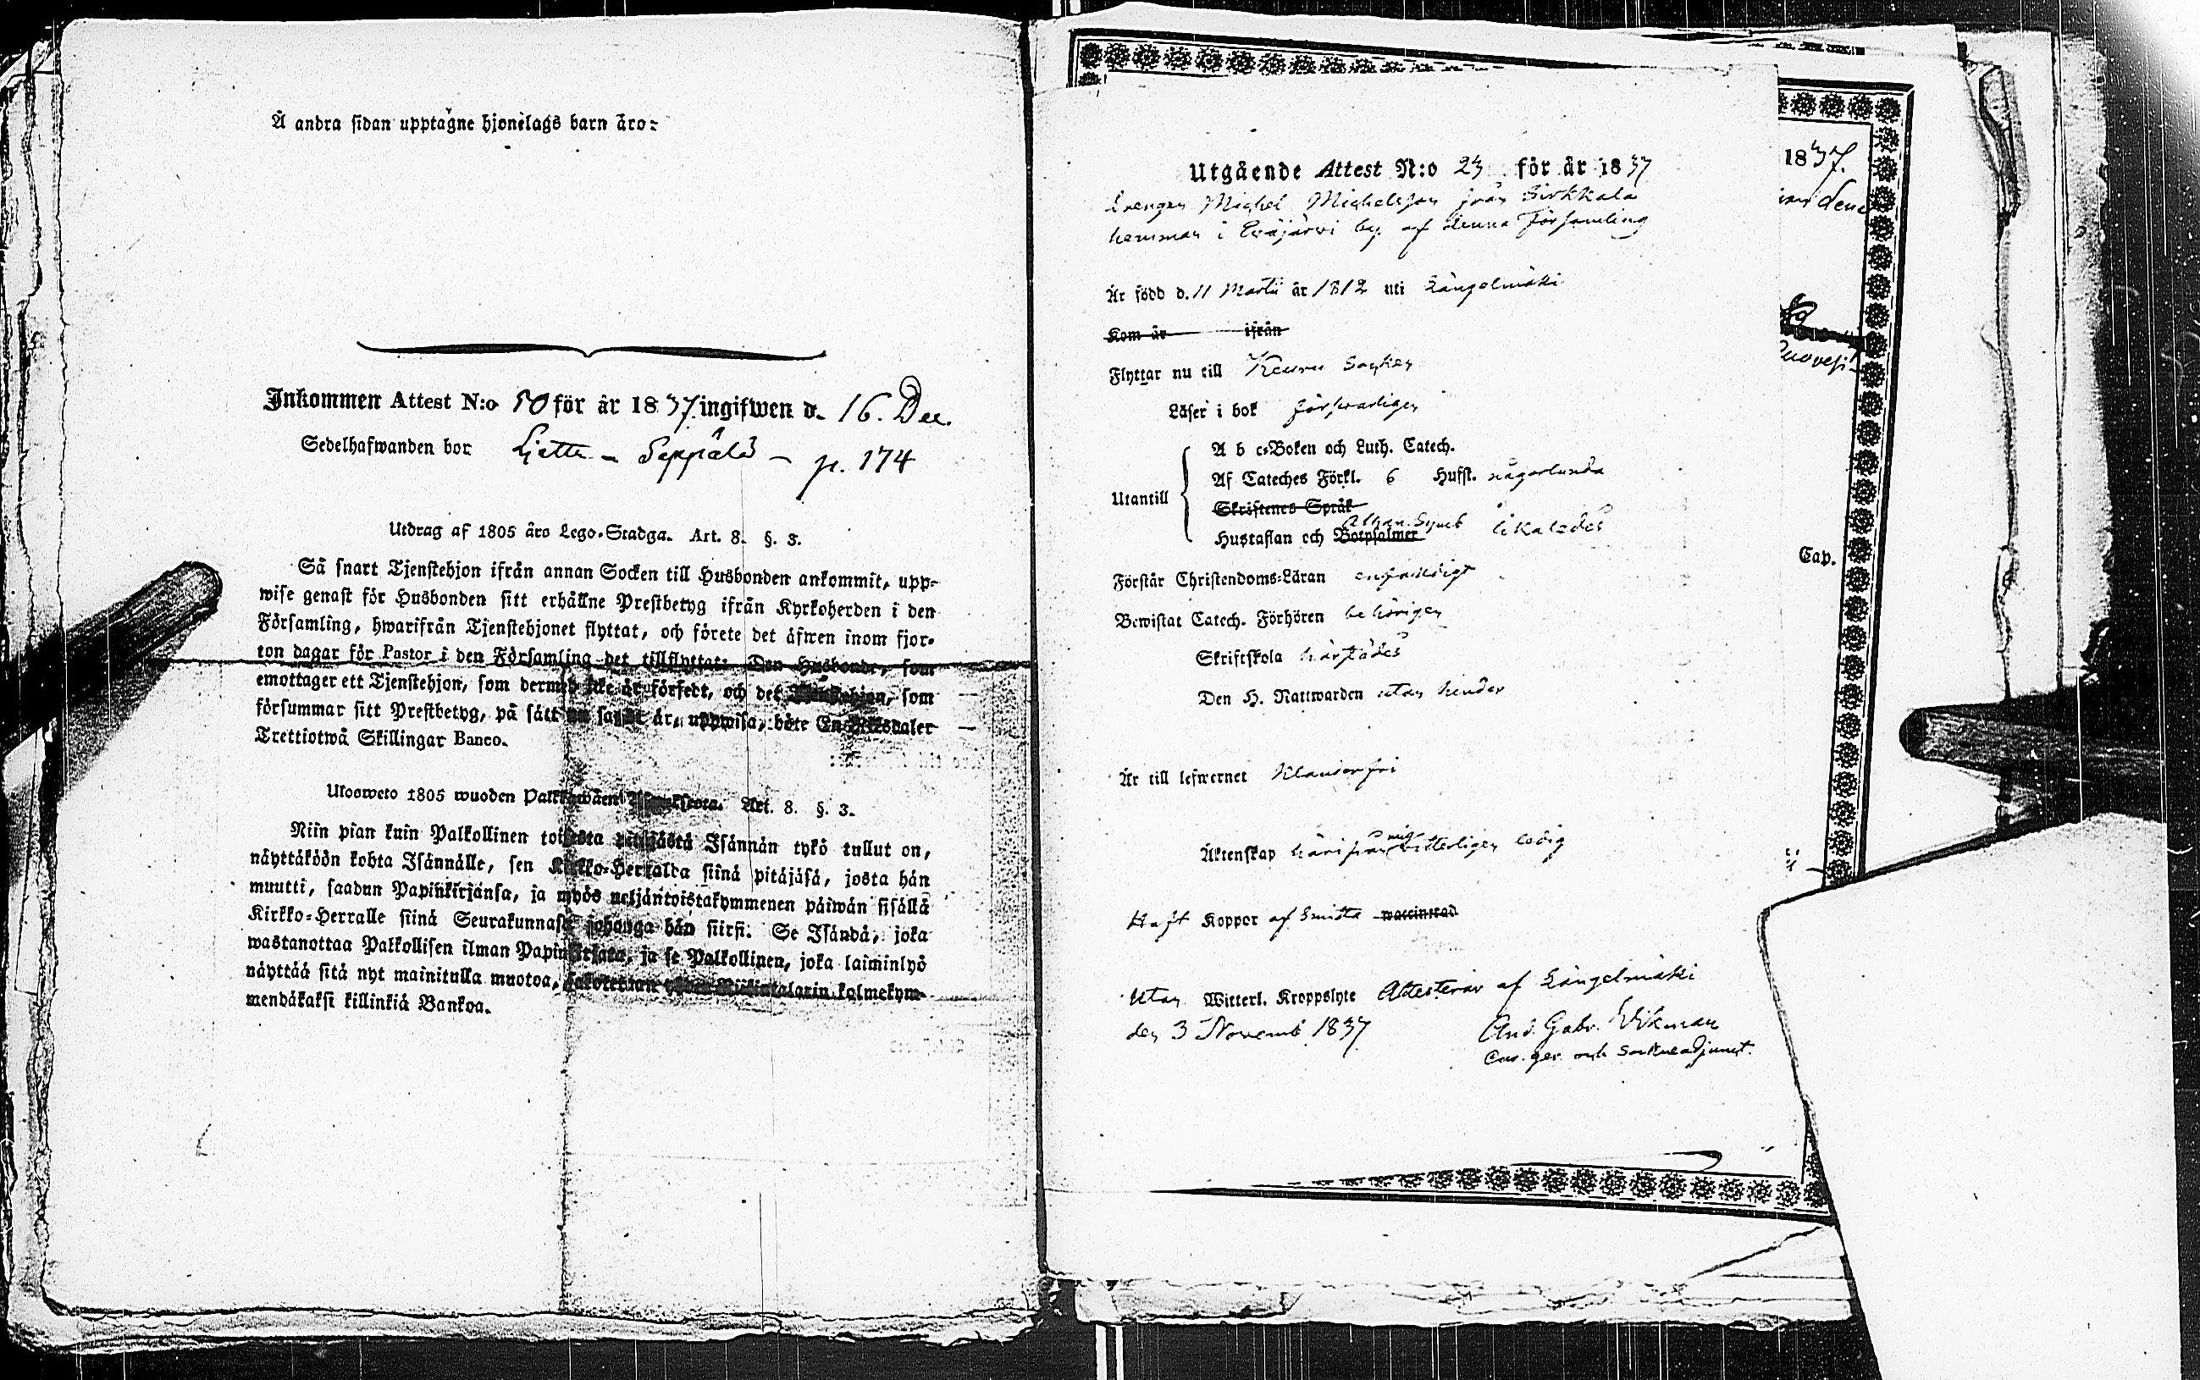 Å andra sidan upptagne hjonelags barn äro:
Inkommen Attest N:o 50 för år 1837 ingifwen d. 16. Dec.
Sedelhafwanden bor Ljette - Seppälä - p. 174
Utdrag af 1805 års Lego-Stadga. Art. 8. §. 3.
Så snart Tjenstehjon ifrån annan Socken till Husbonden ankommit, upp-
wise genast för Husbonden sitt erhållne Prestbetyg ifrån Kyrkoherden i den
Församling, hwarifrån Tjenstehjonet flyttat, och förete det äfwen inom fjor-
ton dagar för Pastor i den Församling det tillflyttat: Den Husbonde, som
emottager ett Tjenstehjon, som dermed icke är försedt, och det Tjenstehjon, som
försummar sitt Prestbetyg, på sätt nu sagdt är, uppwisa, böte En Riksdaler
Trettiotwå Skillingar Banco.
Ulosweto 1805 wuoden Palkkawäen Art. 8. §. 3.
Niin pian kuin Palkollinen toisesta pitäjästä Isännän tykö tullut on,
näyttäköön kohta Isännälle, sen Kirkko-Herralda siinä pitäjäsä, josta hän
muutti, saadun Papinkirjansa, ja myös neljäntoistakymmenen päiwän sisällä
Kirkko-Herralle siinä Seurakunnasa johonga hän siirsi. Se Isändä, joka
wastanottaa Palkollisen ilman Papinkirjata, ja se Palkollinen, joka laiminlyö
näyttää sitä nyt mainitulla muotoa, sakotetaan yhden Riikintalarin kolmekym-
mendäkaksi killinkiä Bankoa.
Utgående Attest N:o 23 för år 1837
Drengen Michel Michelsson från Sirkkala
hemman i Eräjärwi by af denna Församling
Är född d. 11 Martii år 1812 uti Längelmäki
Kom år ifrån
Flyttar nu till Keuru Socken
Läser i bok försvarligen
Utantill
A b c-Boken och Luth. Catech.
Af Cateches Förkl. 6 Hufst. någorlunda
Skriftenes Språk
Athan. Symb
Hustaflan och Botpsalmer likaledes
Förstår Christendoms-Läran enfaldigt
Bewistat Catech. Förhören behörigen
Skriftskola härstädes
Den H. Nattwarden utan hinder
Är till lefwernet klanderfri
mig
Äktenskap härifrån witterligen ledig
Haft Koppor af Smitta waccinerad
Utan Witterl. Kroppslyte Attesterar af Längelmäki
den 3 Novemb. 1837 And. Gabr. Wikman
Cur. ger. och Sockneadjunct.
1837.
Ruovesi
Cap.